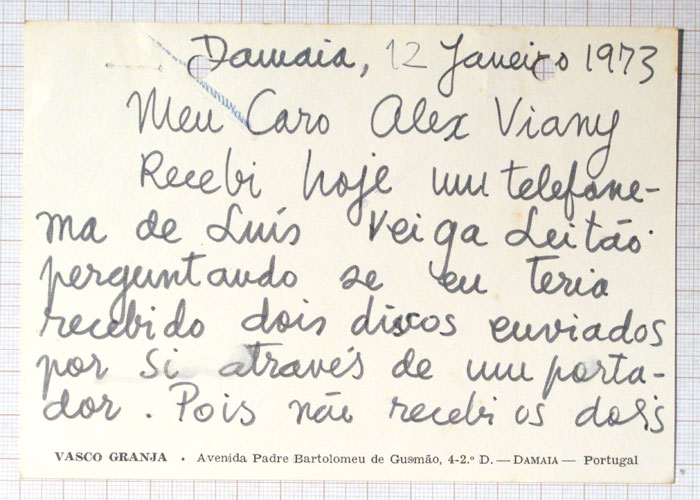 Damaia, 12 Janeiro 1973
Meu Caro Alex Viany
Recebi hoje um telefone-
ma de Luís Veiga Leitão
perguntando se eu teria
recebido dois discos enviados
por si através de um porta-
dor. Pois não recebi os dois
VASCO GRANJA • Avenida Padre Bartolomeu de Gusmão, 4-2.º D. — DAMAIA — Portugal